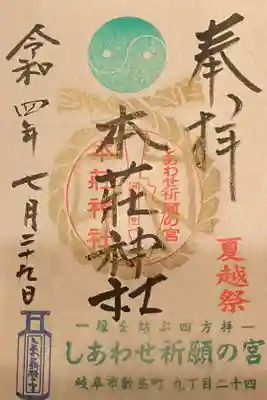 奉拝
しあわせ祈願の宮
本荘神社
本荘神社
夏越祭
令和四年七月二十九日
一縁を結ぶ四方拝一
しあわせ祈願の宮
岐阜市敷島町 九丁目二十四